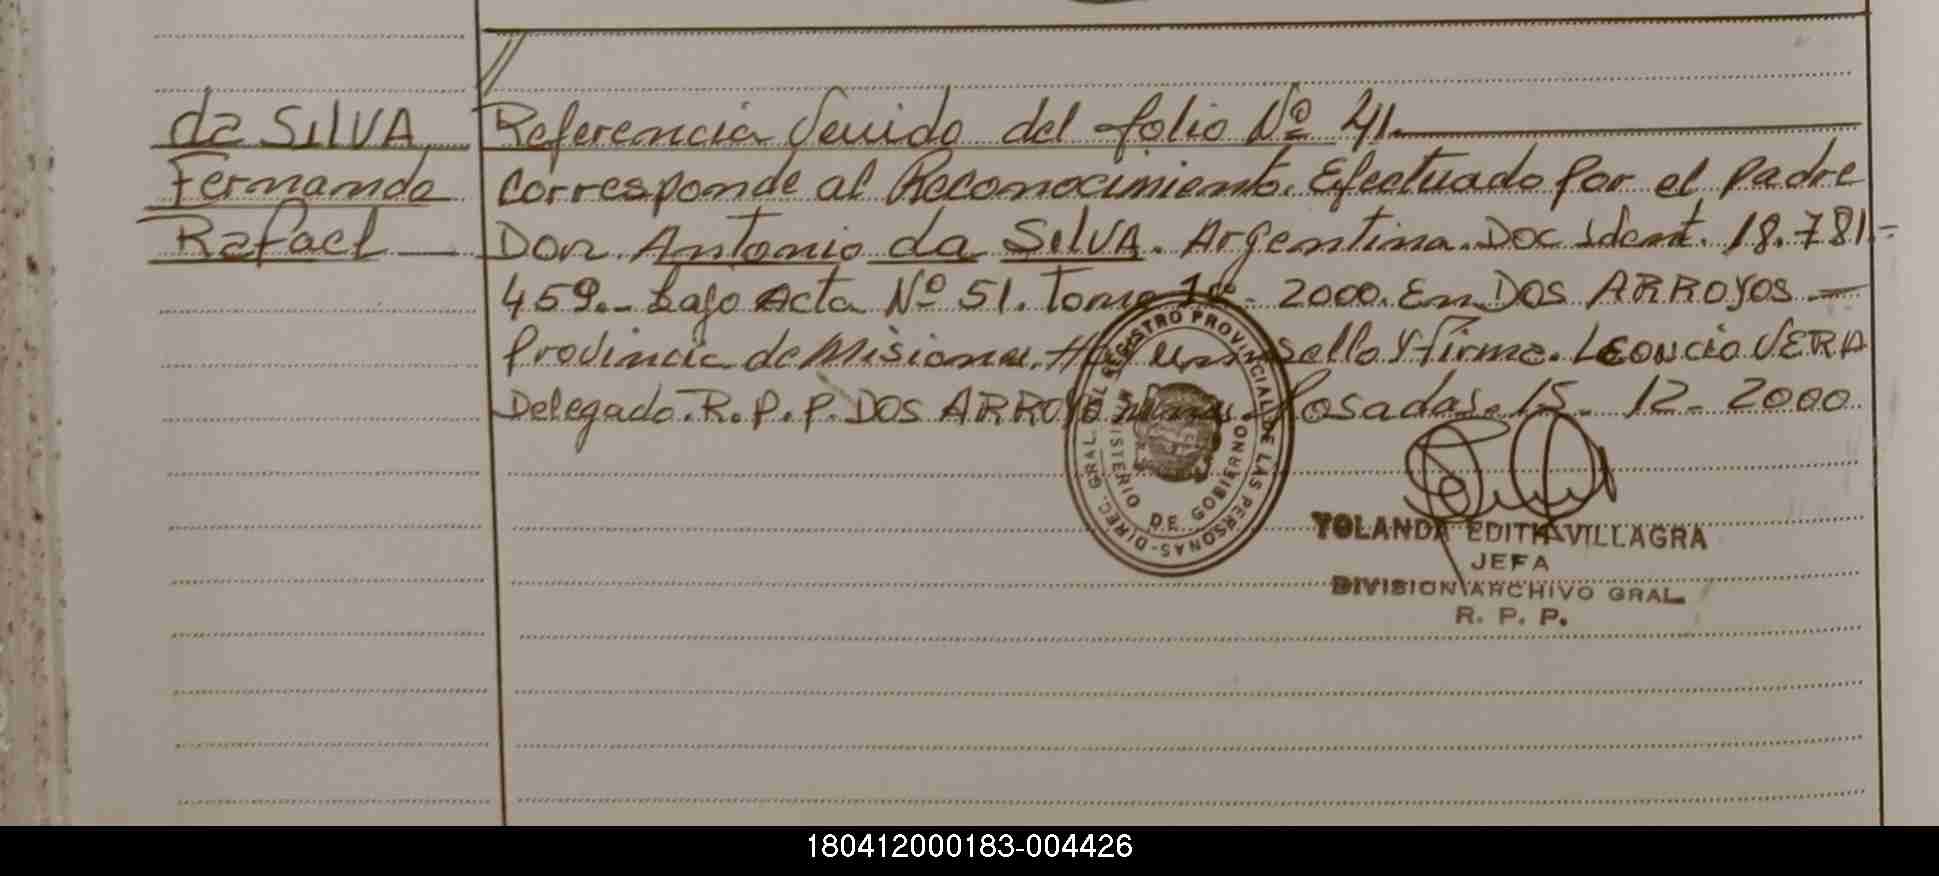 da SilVA
Fernando
Rafael
Referencia Venido del folio Nº 41.
Corresponde al Reconocimiento. Efectuado por el padre
Don Antonio da SilVA. Argentina. Doc Ident. 18.781.-
459.- bajo Acta Nº 51. Tomo 1º- 2000. En DOS ARROYOS —
Provincia de Misiones. Hay un sello y firma. LEONCIO VERA
Delegado. R.P.P. DOS ARROYO Posadas. 15. 12- 2000
REGISTRO PROVINCIAL DE LAS PERSONAS - DIREC. GRAL. DEL
MINISTERIO DE GOBIERNO
YOLANDA EDITH VILLAGRA
JEFA
DIVISION ARCHIVO GRAL.
R. P. P.
180412000183-004426